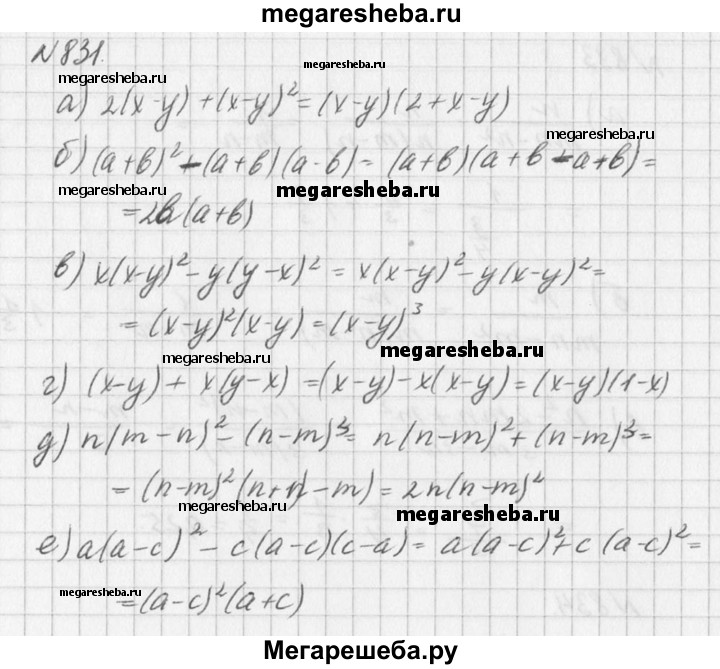 megaresheba.ru
N 831.
megaresheba.ru
megaresheba.ru
а) 2(x-y)+(x-y)²=(x-y)(2+x-y)
megaresheba.ru
б) (a+b)²-(a+b)(a-b)=(a+b)(a+b-a+b)=
megaresheba.ru
megaresheba.ru
=2b(a+b)
в) x(x-y)²-y(y-x)²=x(x-y)²-y(x-y)²=
=(x-y)²(x-y)=(x-y)³
megaresheba.ru
megaresheba.ru
г) (x-y)+x(y-x)=(x-y)-x(x-y)=(x-y)(1-x)
megaresheba.ru
megaresheba.ru
д) n(m-n)²-(n-m)³=n(n-m)²+(n-m)³=
=(n-m)²(n+n-m)=2n(n-m)²
megaresheba.ru
megaresheba.ru
е) a(a-c)²-c(a-c)(c-a)=a(a-c)²+c(a-c)²=
megaresheba.ru
=(a-c)²(a+c)
Мегарешеба.ру